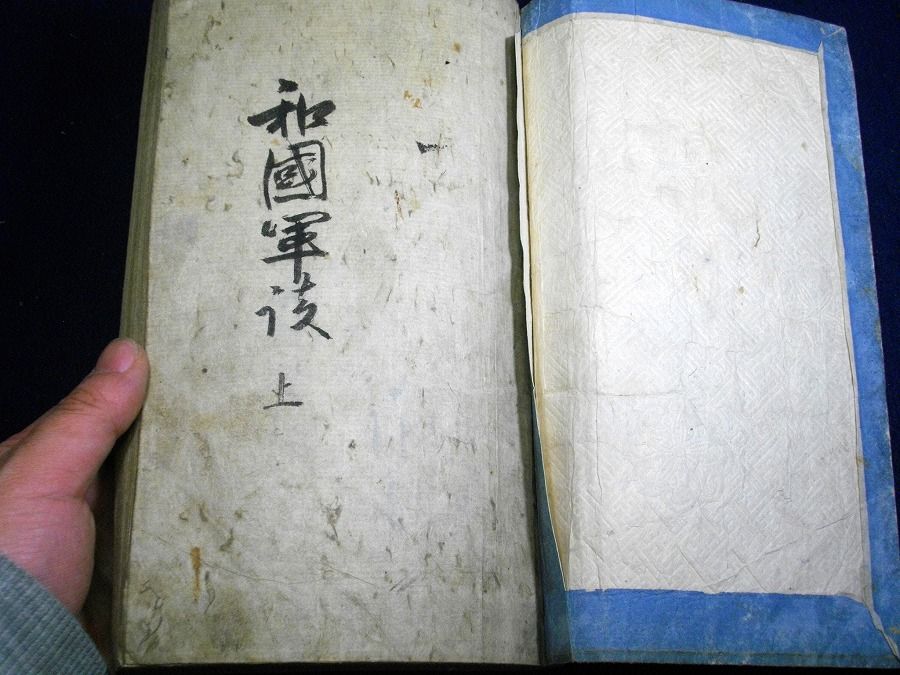 和國軍談
上